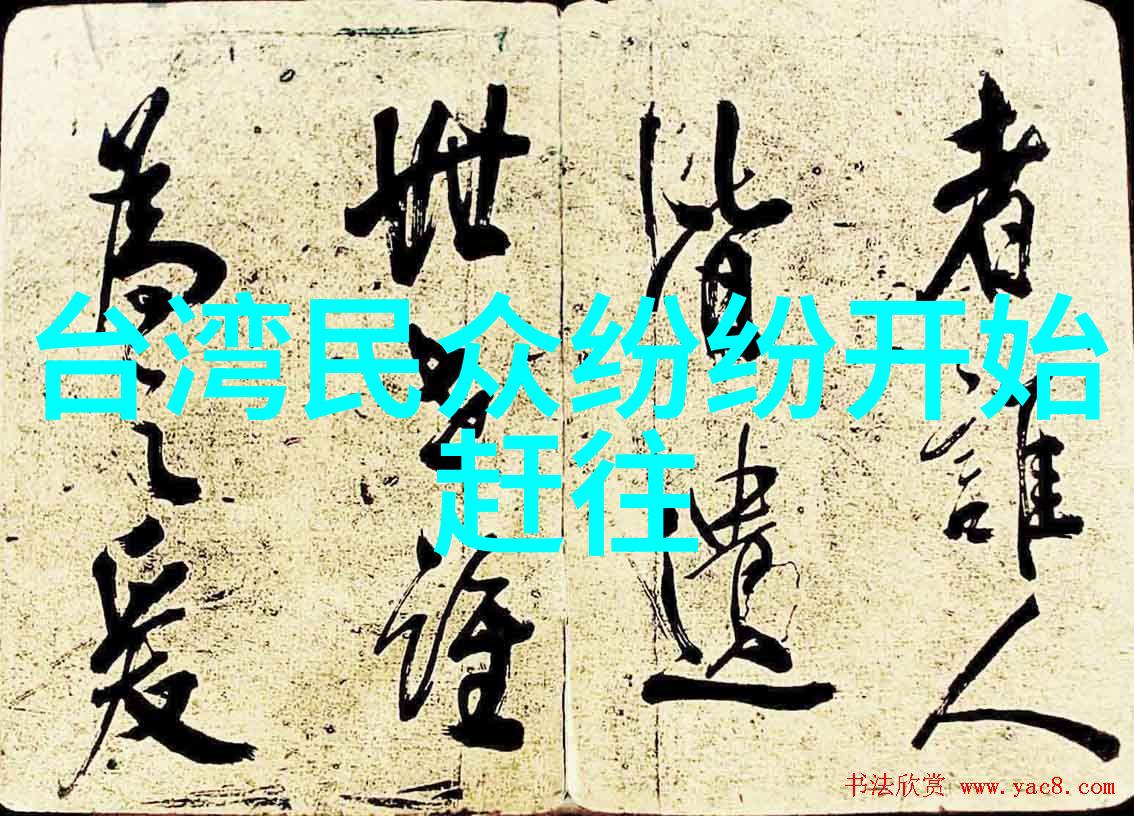 台湾民众纷纷开始
赶往
者誰人
皆遺
世誰
為之
书法欣赏 www.yac8.com